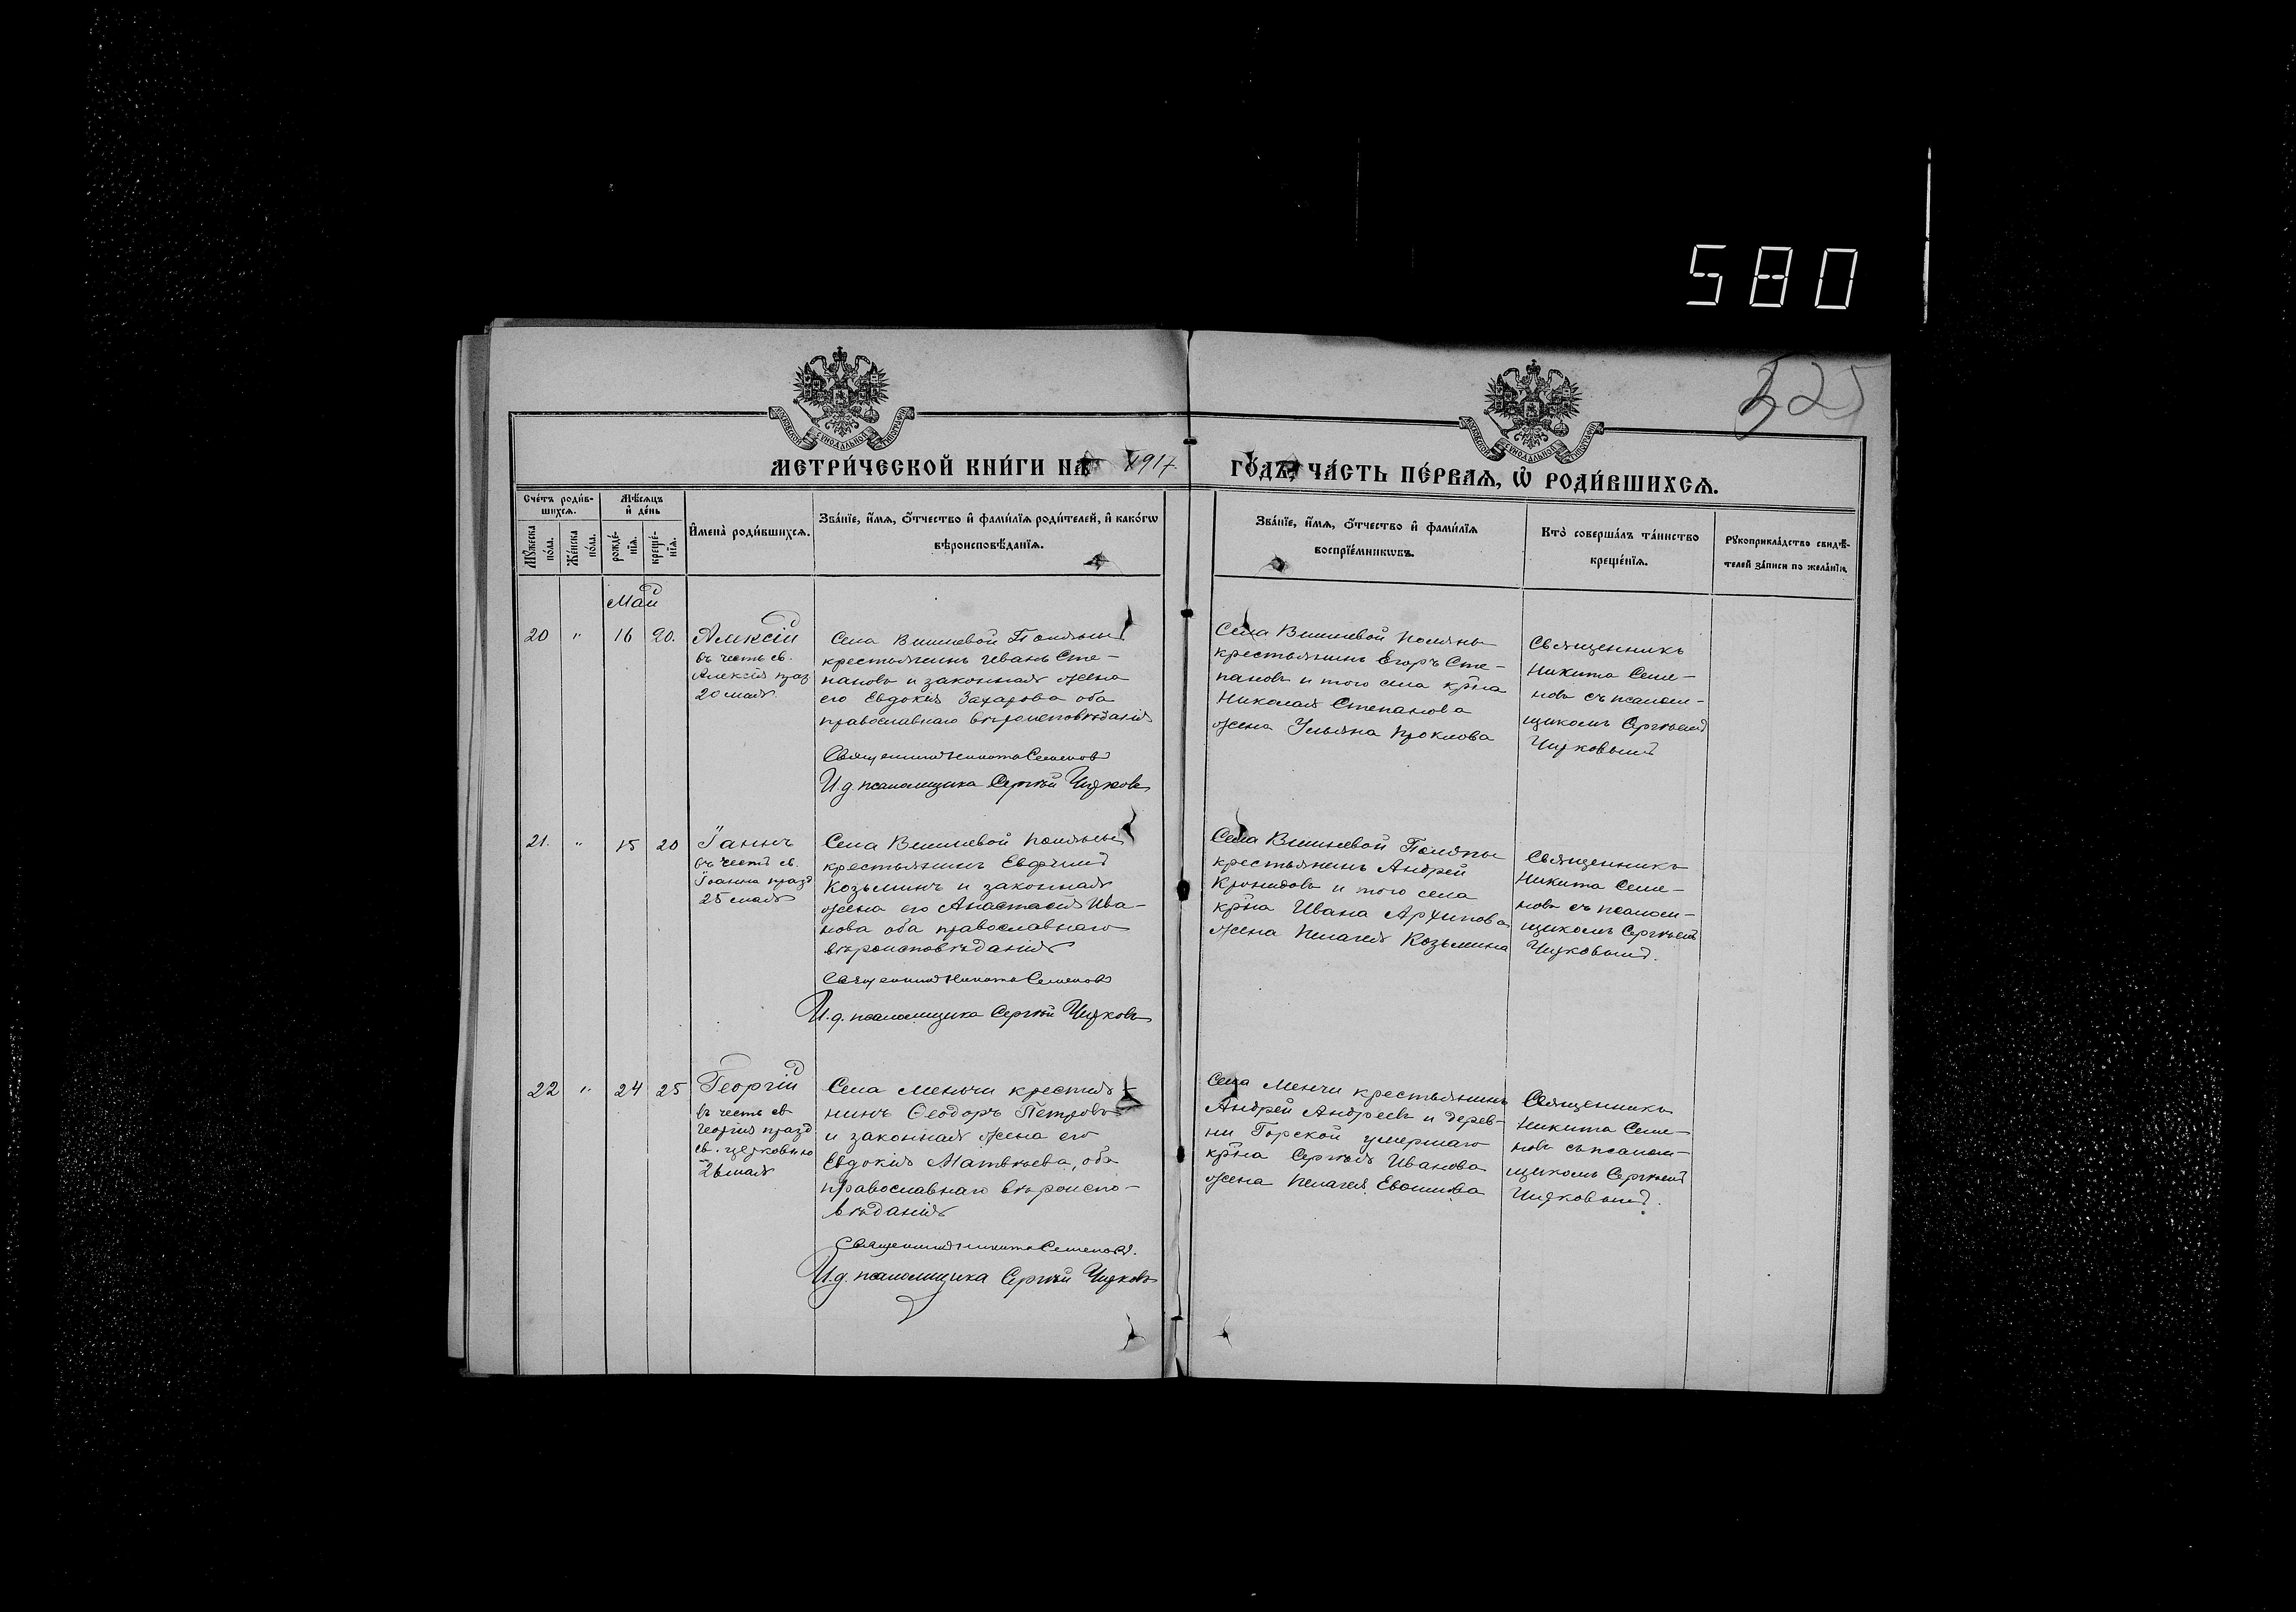 580
325
МЕТРИ́ЧЕСКОЙ КНИ́ГИ НА 1917
ГО́ДЪ, ЧА́СТЬ ПЕ́РВАЯ, Ѡ РОДИ́ВШИХСЯ.
Сче́тъ роди́в-
шихся.
Мѣ́сяцъ
и де́нь
Му́жеска
по́ла.
Же́нска
по́ла.
рожде́-
нїя.
креще́-
нїя.
Имена̀ роди́вшихся.
Зва́нїе, и́мя, о́тчество и фами́лїя роди́телей, и како́гѡ
вѣроисповѣ́данїя.
Зва́нїе, и́мя, о́тчество и фами́лїя
воспрїе́мникѡвъ.
Кто̀ соверша́лъ та́инство
креще́нїя.
Рукоприкла́дство свидѣ́-
телей за́писи по жела́нїю.
Май
20 " 16 20.
Алексій
въ честь св.
Алексія праз
20 мая
Села Вишневой Поляны
крестьянинъ Иванъ Сте-
пановъ и законная жена
его Евдокія Захарова оба
православнаго вѣроисповѣданія
Священникъ Никита Семеновъ
И.д. псаломщика Сергѣй Чирковъ
Села Вишневой Поляны
крестьянинъ Егоръ Сте-
пановъ и того села кр̃на
Николая Степанова
жена Ульяна Проклова
Священникъ
Никита Семе-
новъ съ псалом-
щикомъ Сергѣемъ
Чирковымъ
21. " 15 20
Іаннъ
въ честь св.
Іоанна празд
25 мая
Села Вишневой Поляны
крестьянинъ Евфимій
Козьминъ и законная
жена его Анастасія Ива-
нова оба православнаго
вѣроисповѣданія
Священникъ Никита Семеновъ
И.д. псаломщика Сергѣй Чирковъ
Села Вишневой Поляны
крестьянинъ Андрей
Кронидовъ и того села
кр̃на Ивана Архипова
жена Пелагея Козьмина
Священникъ
Никита Семе-
новъ съ псалом-
щикомъ Сергѣемъ
Чирковымъ.
22 " 24 25
Георгій
въ честь св
Георгія празд
св. церковью
26 мая
Села Менчи крестья-
нинъ Ѳеодоръ Петровъ
и законная жена его
Евдокія Матвѣева, оба
православнаго вѣроиспо-
вѣданія
Священникъ Никита Семеновъ.
И.д. псаломщика Сергѣй Чирковъ
Села Менчи крестьянинъ
Андрей Андреевъ и дерев-
ни Горской умершаго
кр̃на Сергѣя Иванова
жена Пелагея
Священникъ
Никита Семе-
новъ съ псалом-
щикомъ Сергѣемъ
Чирковымъ.